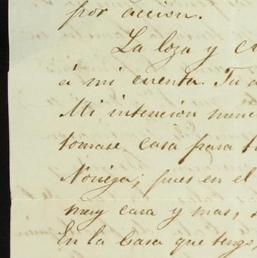 por accion.
La loza y c
á mi cuenta. Tu c
Mi intencion nunc
tomase, casa para t
Noriega; pues en el
muy cara y mas,
En la Casa que tengo,